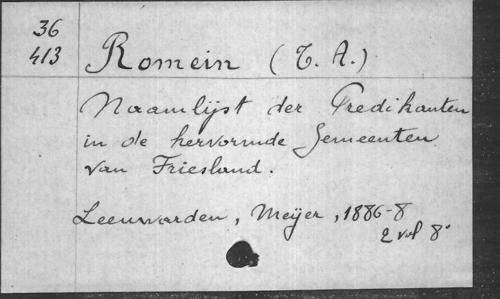 36
413
Romein (T. A.)
Naamlijst der Predikanten
in de hervormde Gemeenten
van Friesland.
Leeuwarden, Meijer, 1886-8
2 vol 8°